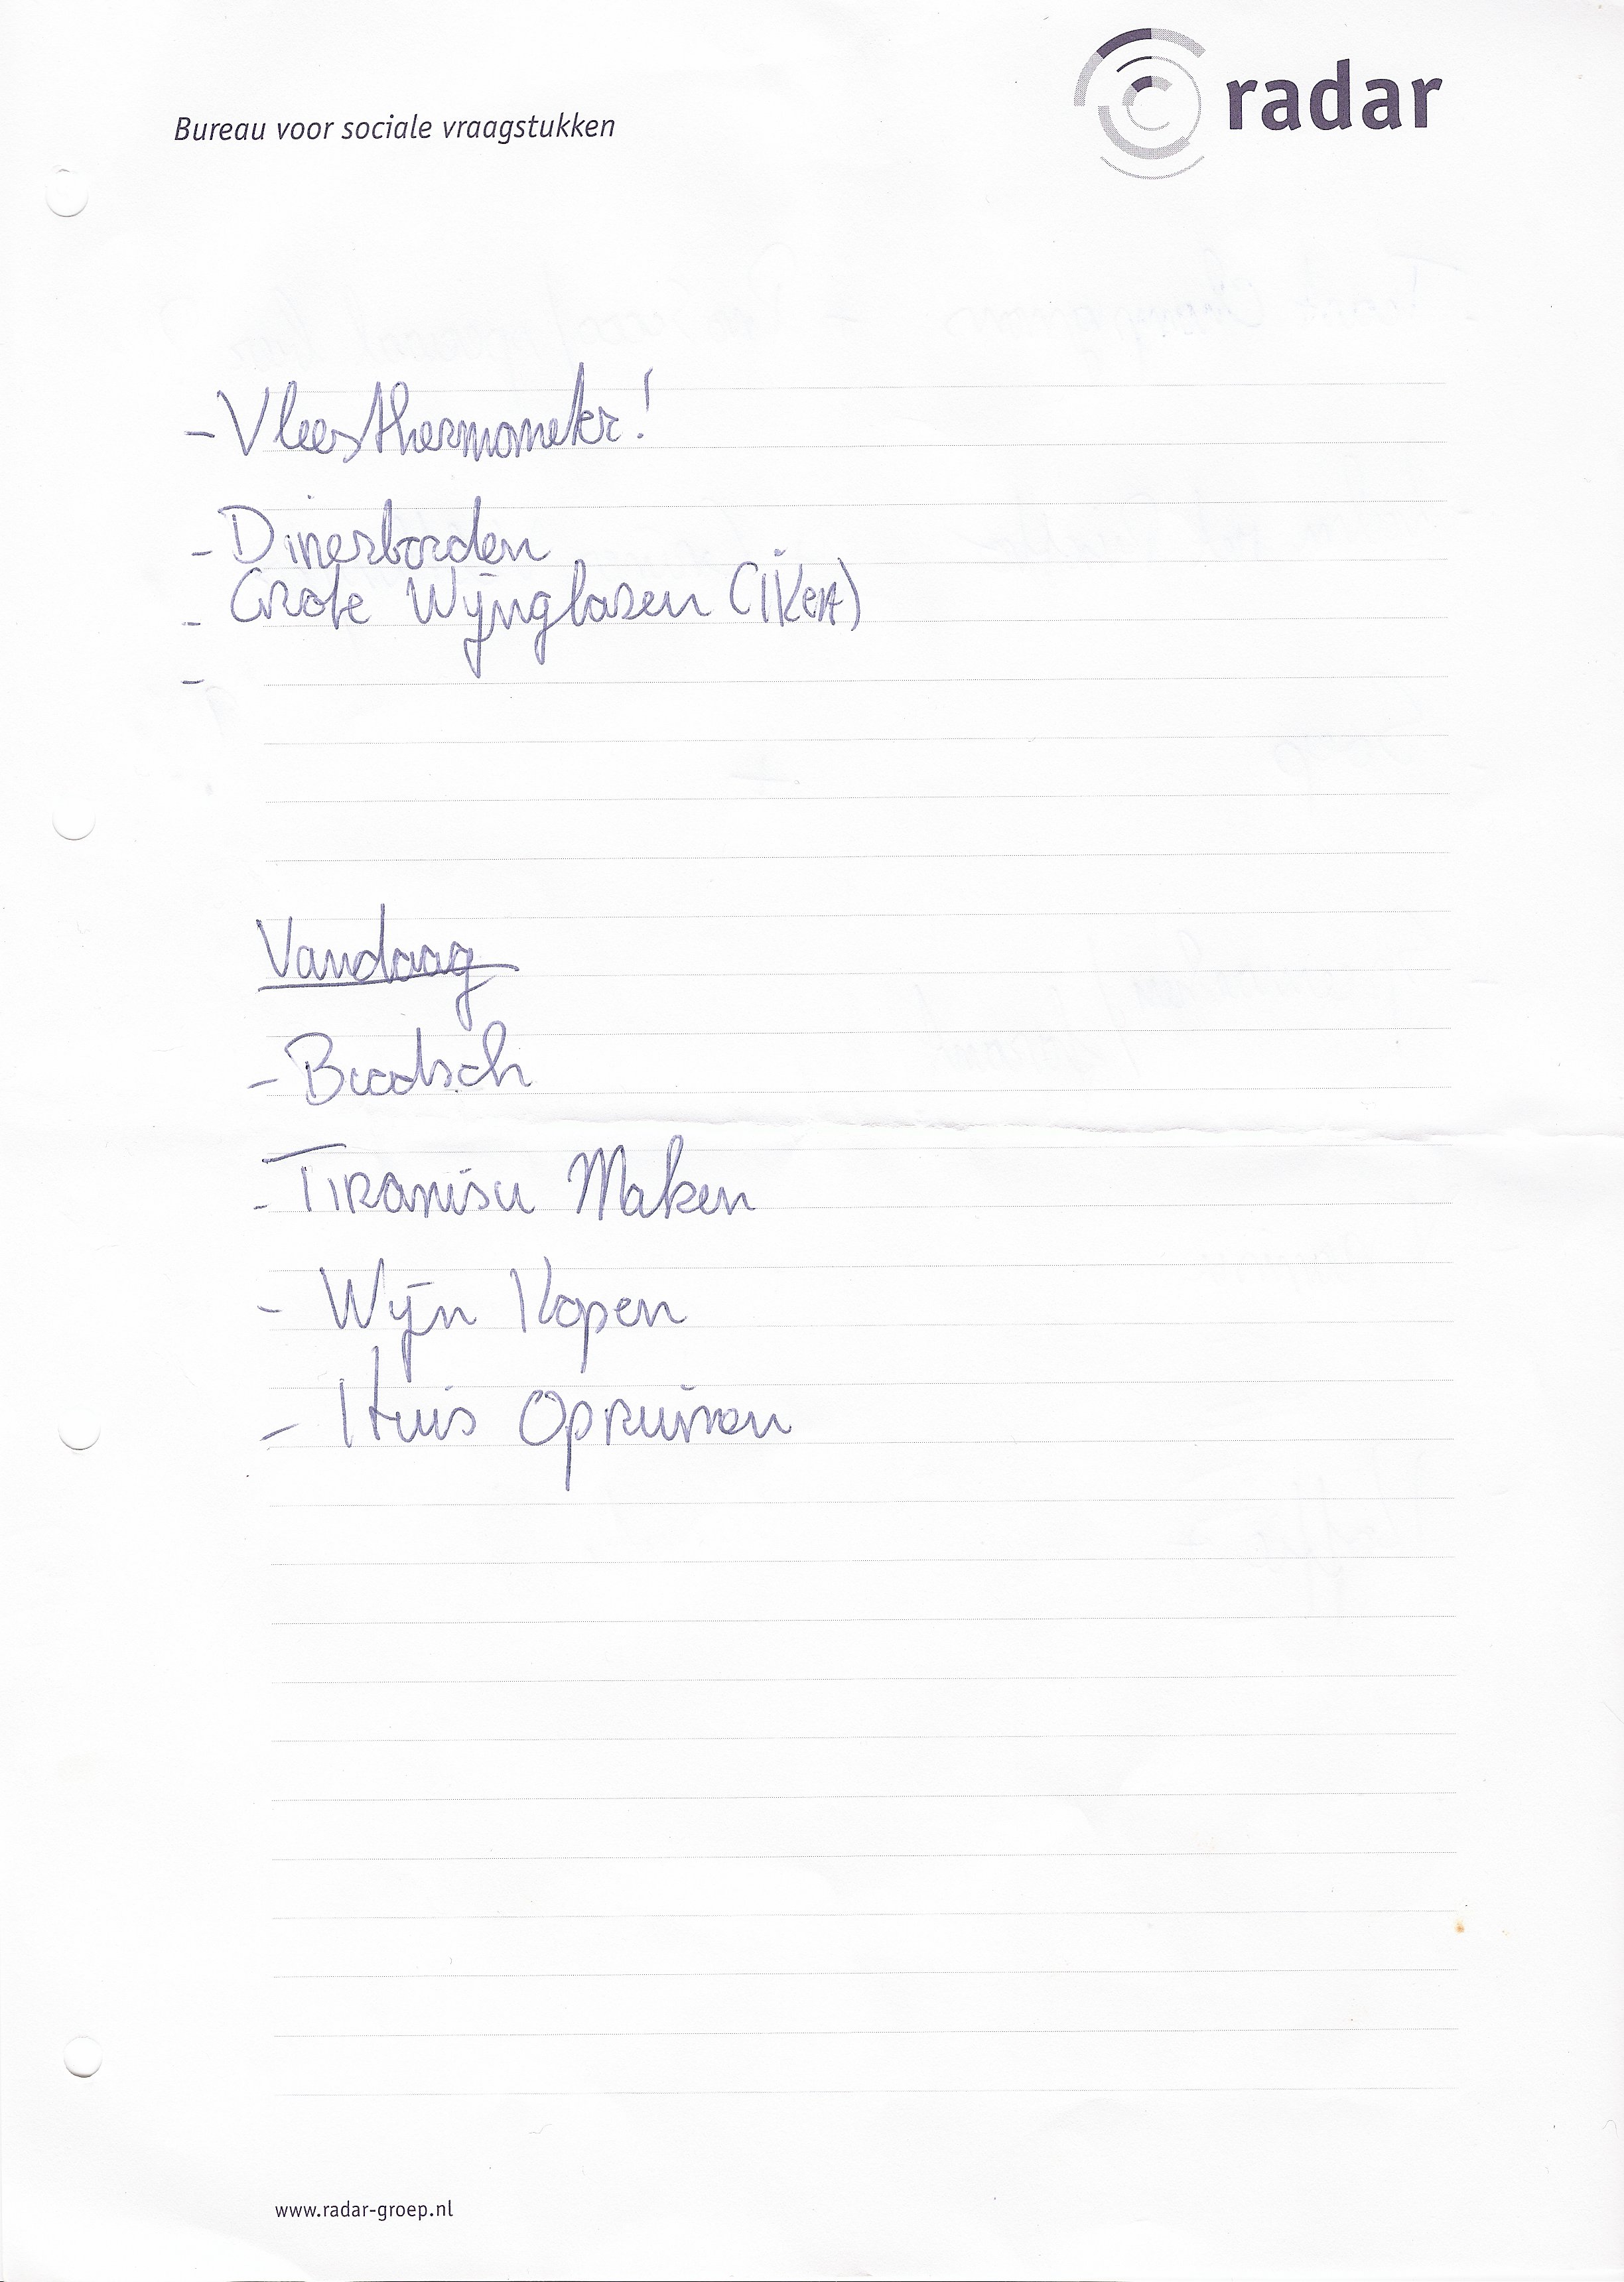 Bureau voor sociale vraagstukken
radar
- Vleesthermometer!
- Dinerborden
- Grote Wijnglasen (IKEA)
-
Vandaag
-
- Tiramisu Maken
- Wijn Kopen
- Huis Opruimen
www.radar-groep.nl